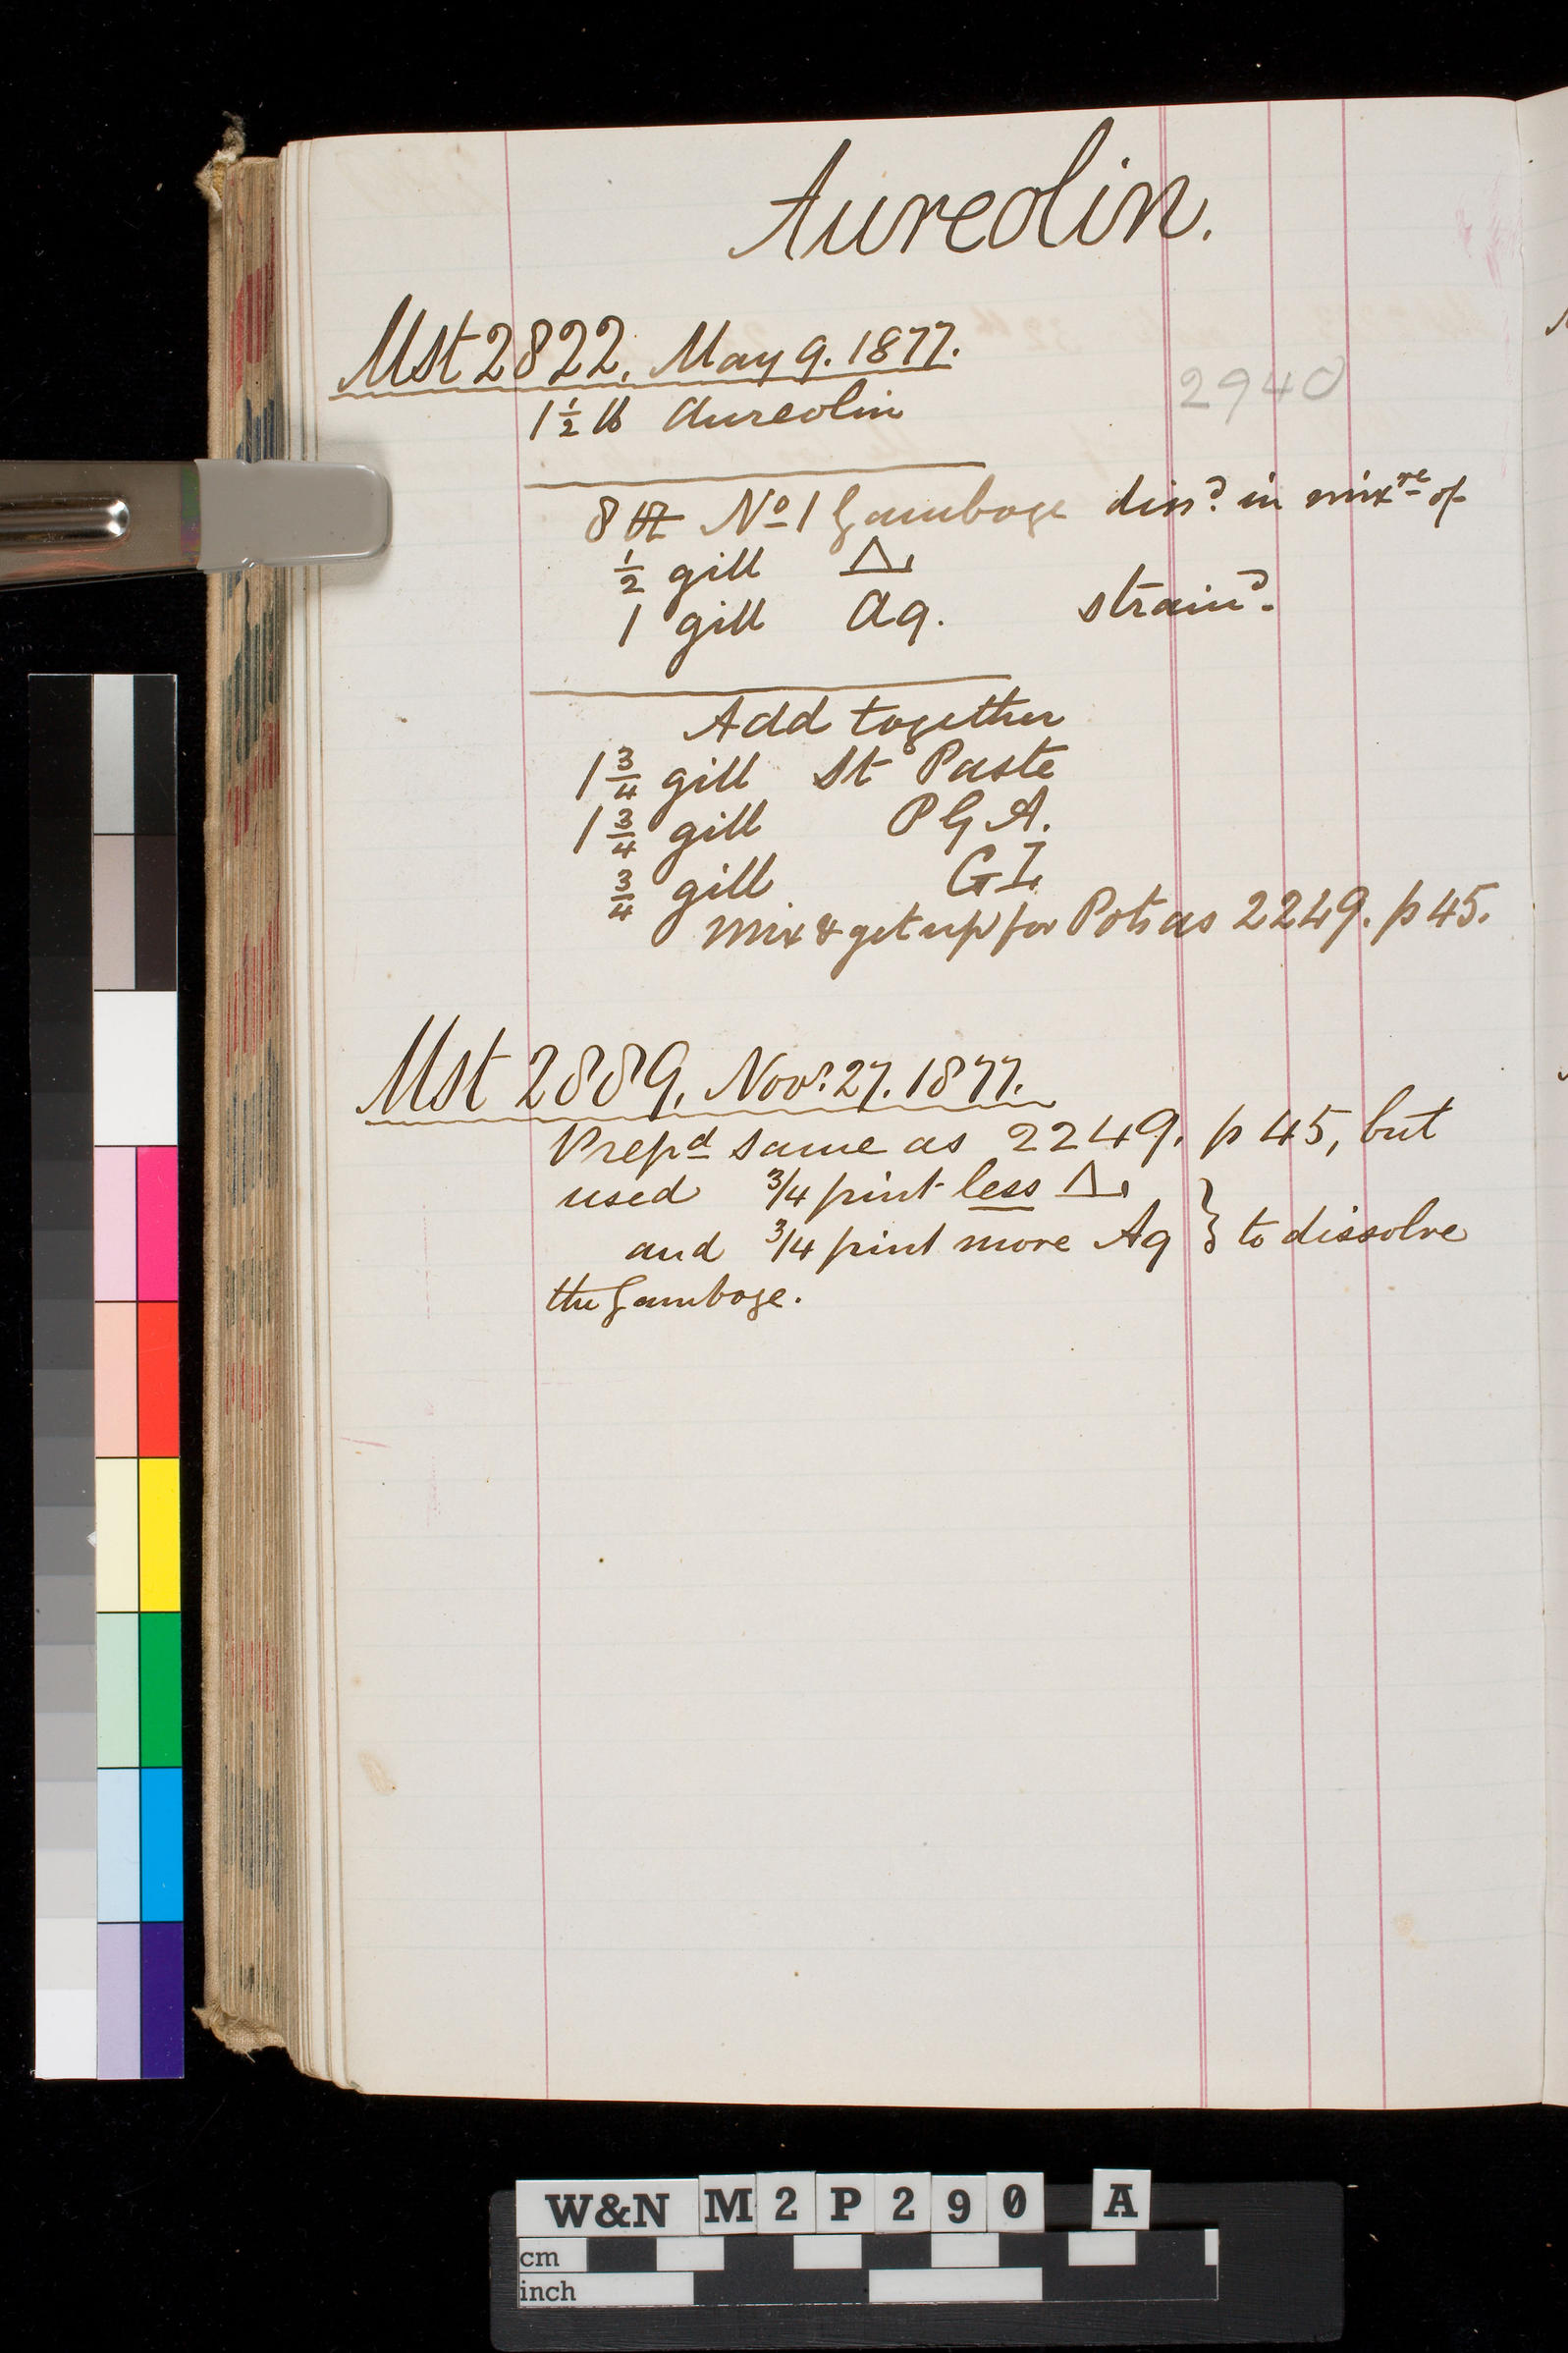 Aureolin.
Mst 2822. May 9. 1877.
2940
1 1/2 lb Aureolin
8 oz No 1 Gamboge diss^d. in mix^re of
1/2 gill △.
1 gill Aq. strain^d.
Add together
1 3/4 gill St Paste
1 3/4 gill P G A.
3/4 gill GL
Mix & get up for Pots as 2249. p 45.
Mst 2889. Nov^r. 27. 1877.
Prep^d same as 2249. p 45, but
used 3/4 pint less △.
and 3/4 pint more Aq } to dissolve
the Gamboge.
W&N M2P290 A
cm
inch